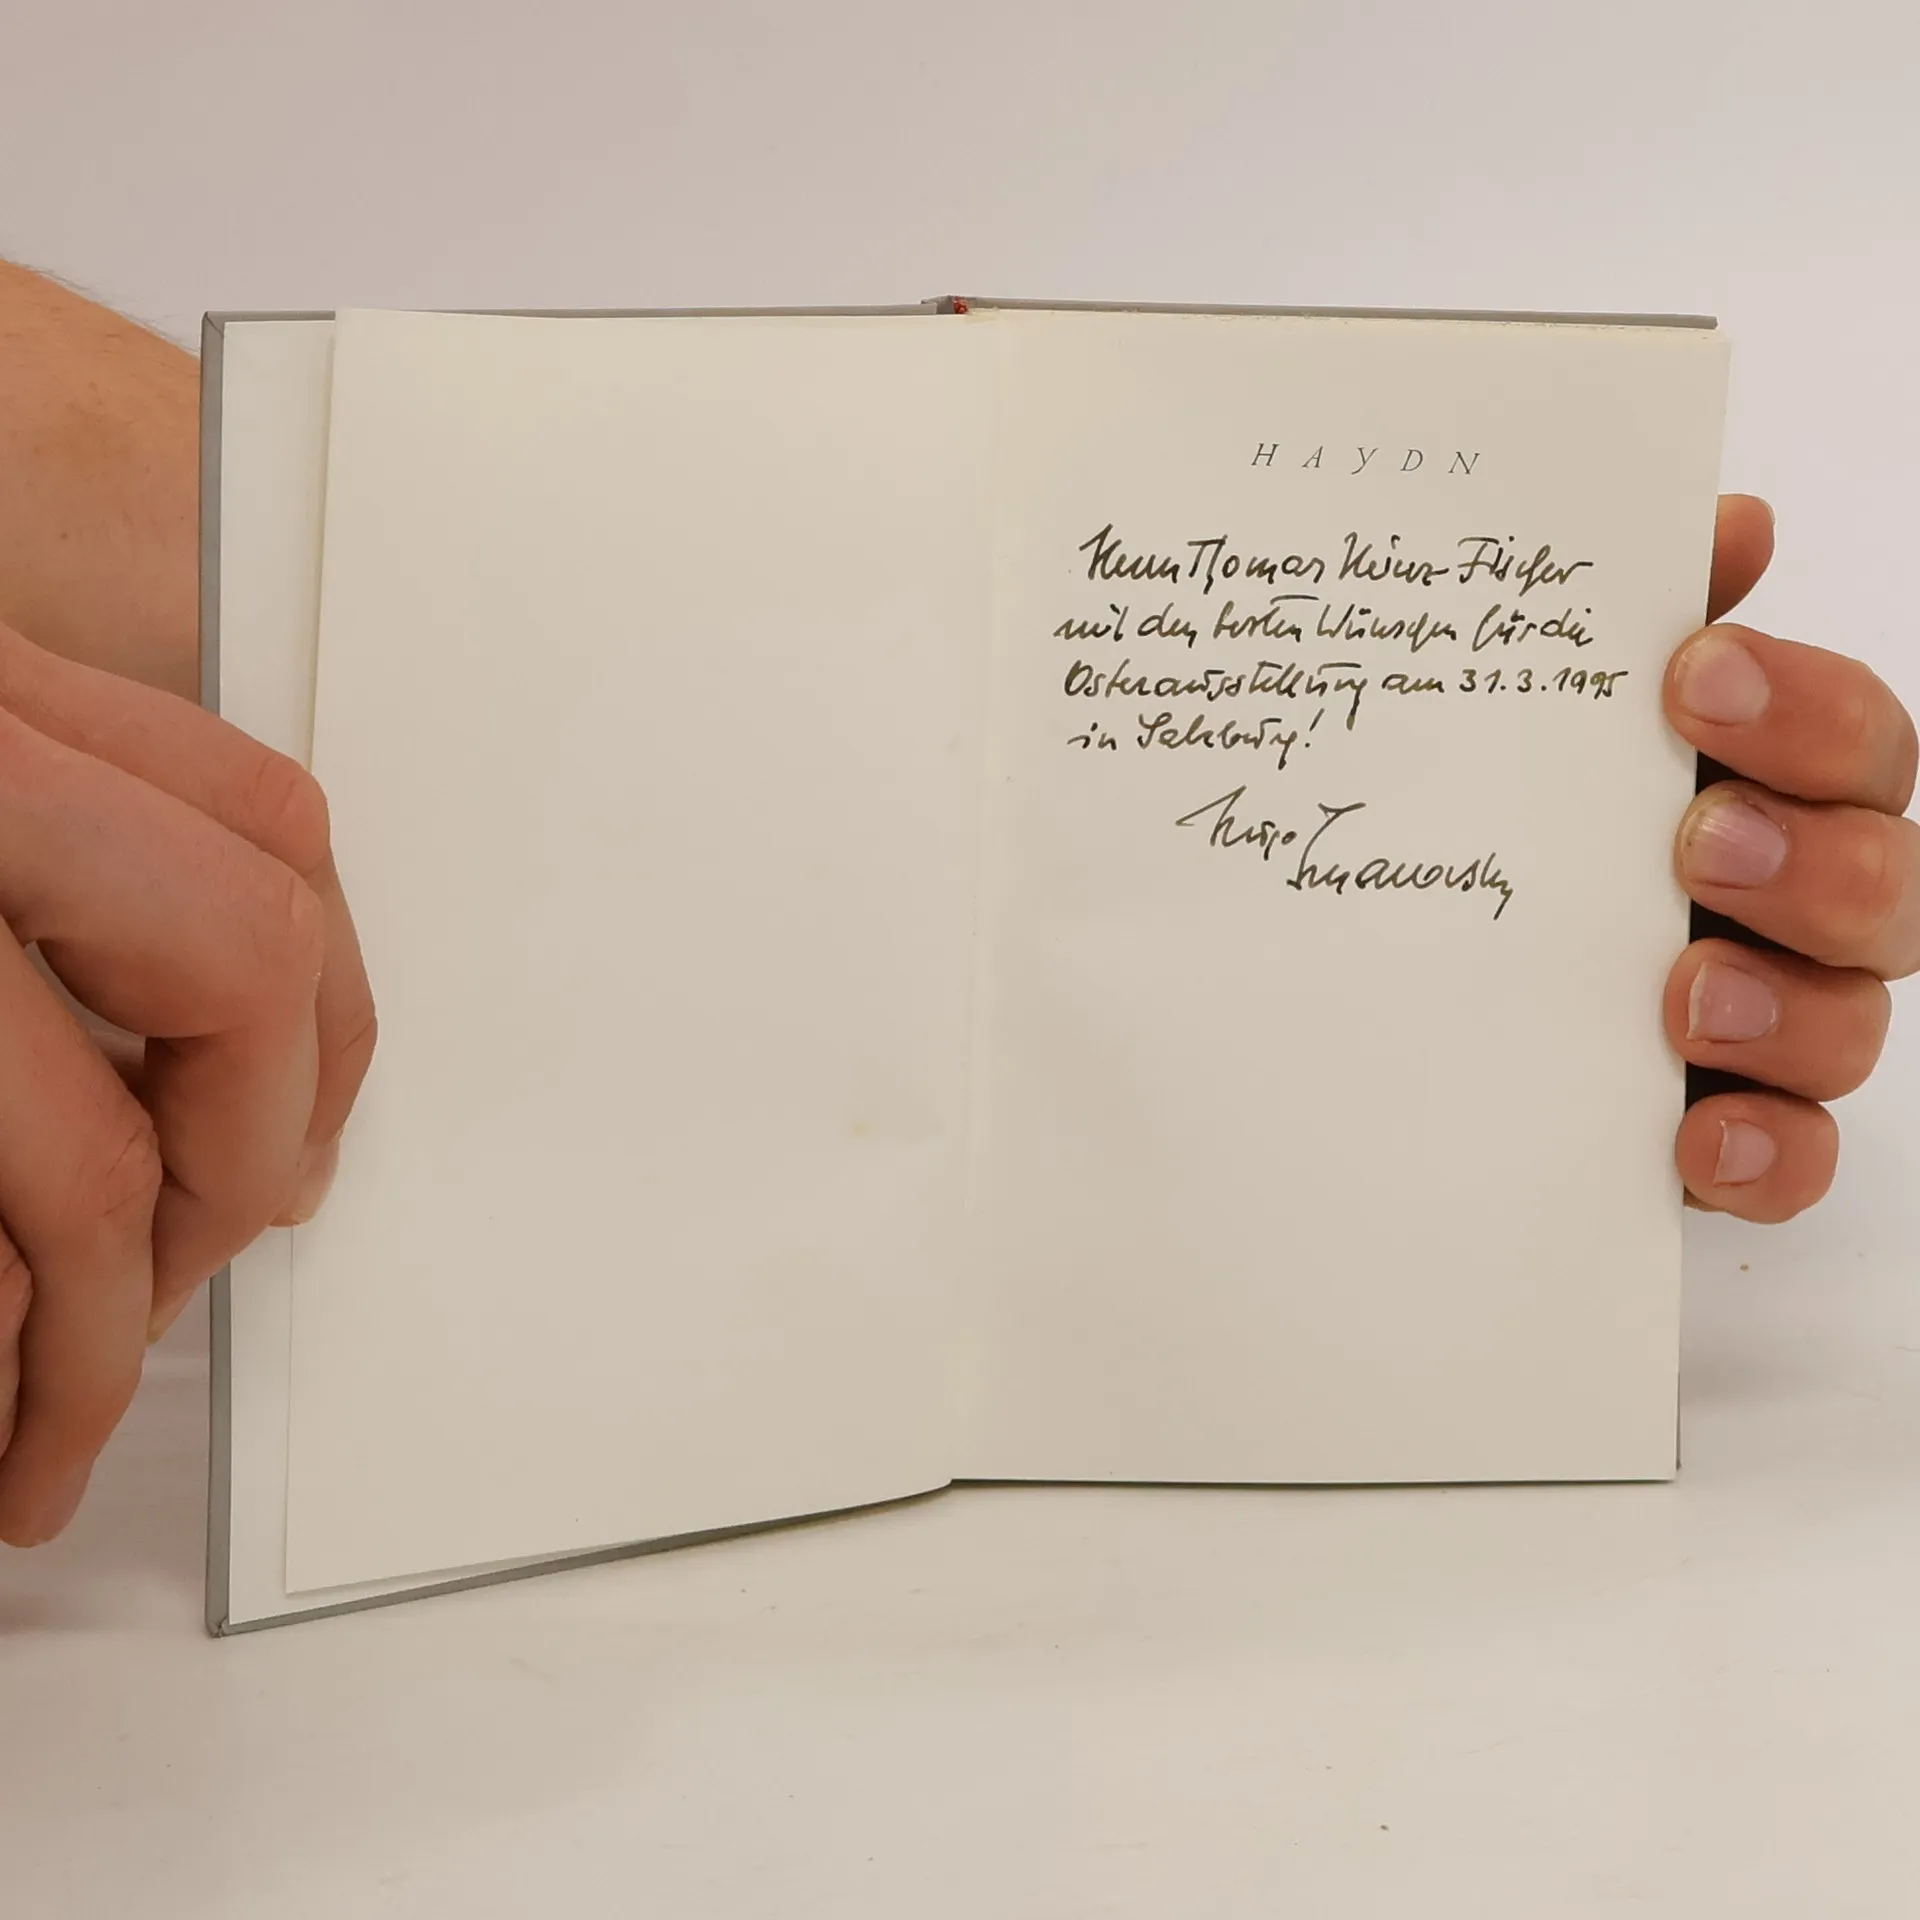 HAYDN
Herrn Thomas Heinz Fischer
mit den besten Wünschen für die
Osterausstellung am 31.3.1995
in Salzburg!